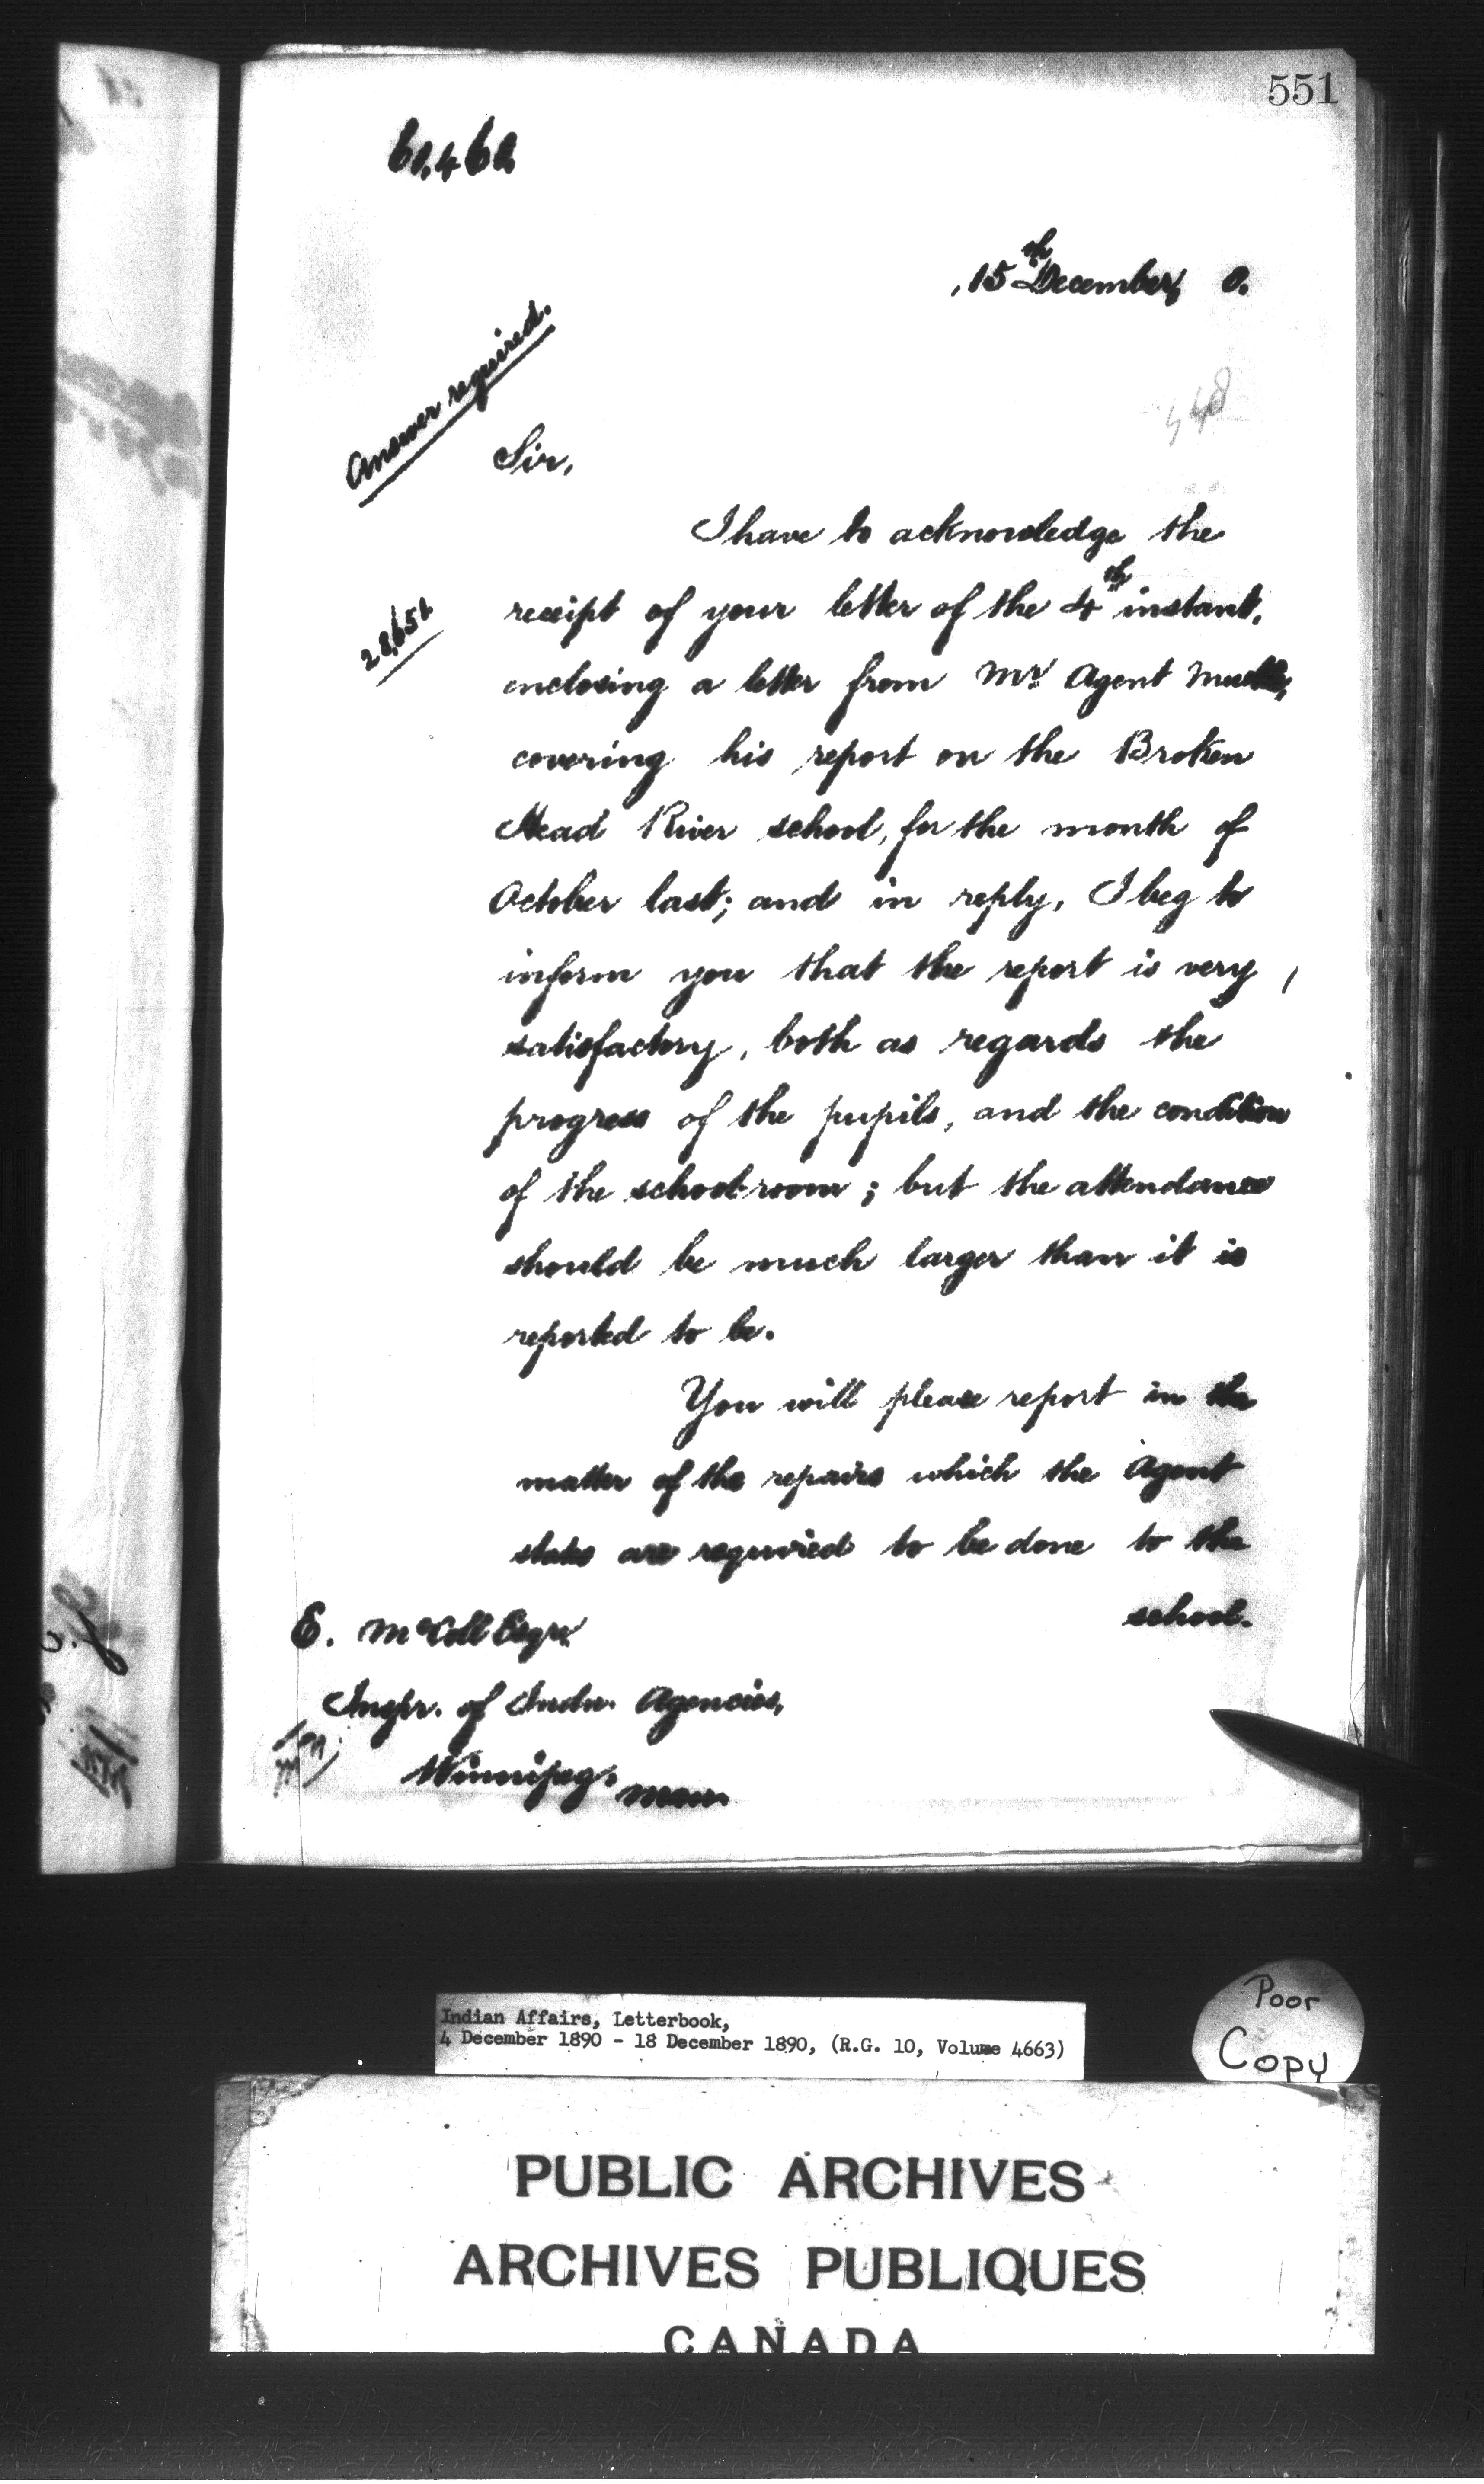 551
15th December, 0.
Answer required.
Sir,
I have to acknowledge the
receipt of your letter of the 4th instant,
enclosing a letter from Mr. Agent
covering his report on the Broken
Head River school, for the month of
October last; and in reply, I beg to
inform you that the report is very
satisfactory, both as regards the
progress of the pupils, and the condition
of the school-room; but the attendance
should be much larger than it is
reported to be.
You will please report in the
matter of the repairs which the Agent
states are required to be done to the
school.
E. McColl Esqre.
Inspr. of Indn. Agencies,
Winnipeg, Man.
Indian Affairs, Letterbook,
4 December 1890 - 18 December 1890, (R.G. 10, Volume 4663)
Poor
Copy
PUBLIC ARCHIVES
ARCHIVES PUBLIQUES
CANADA